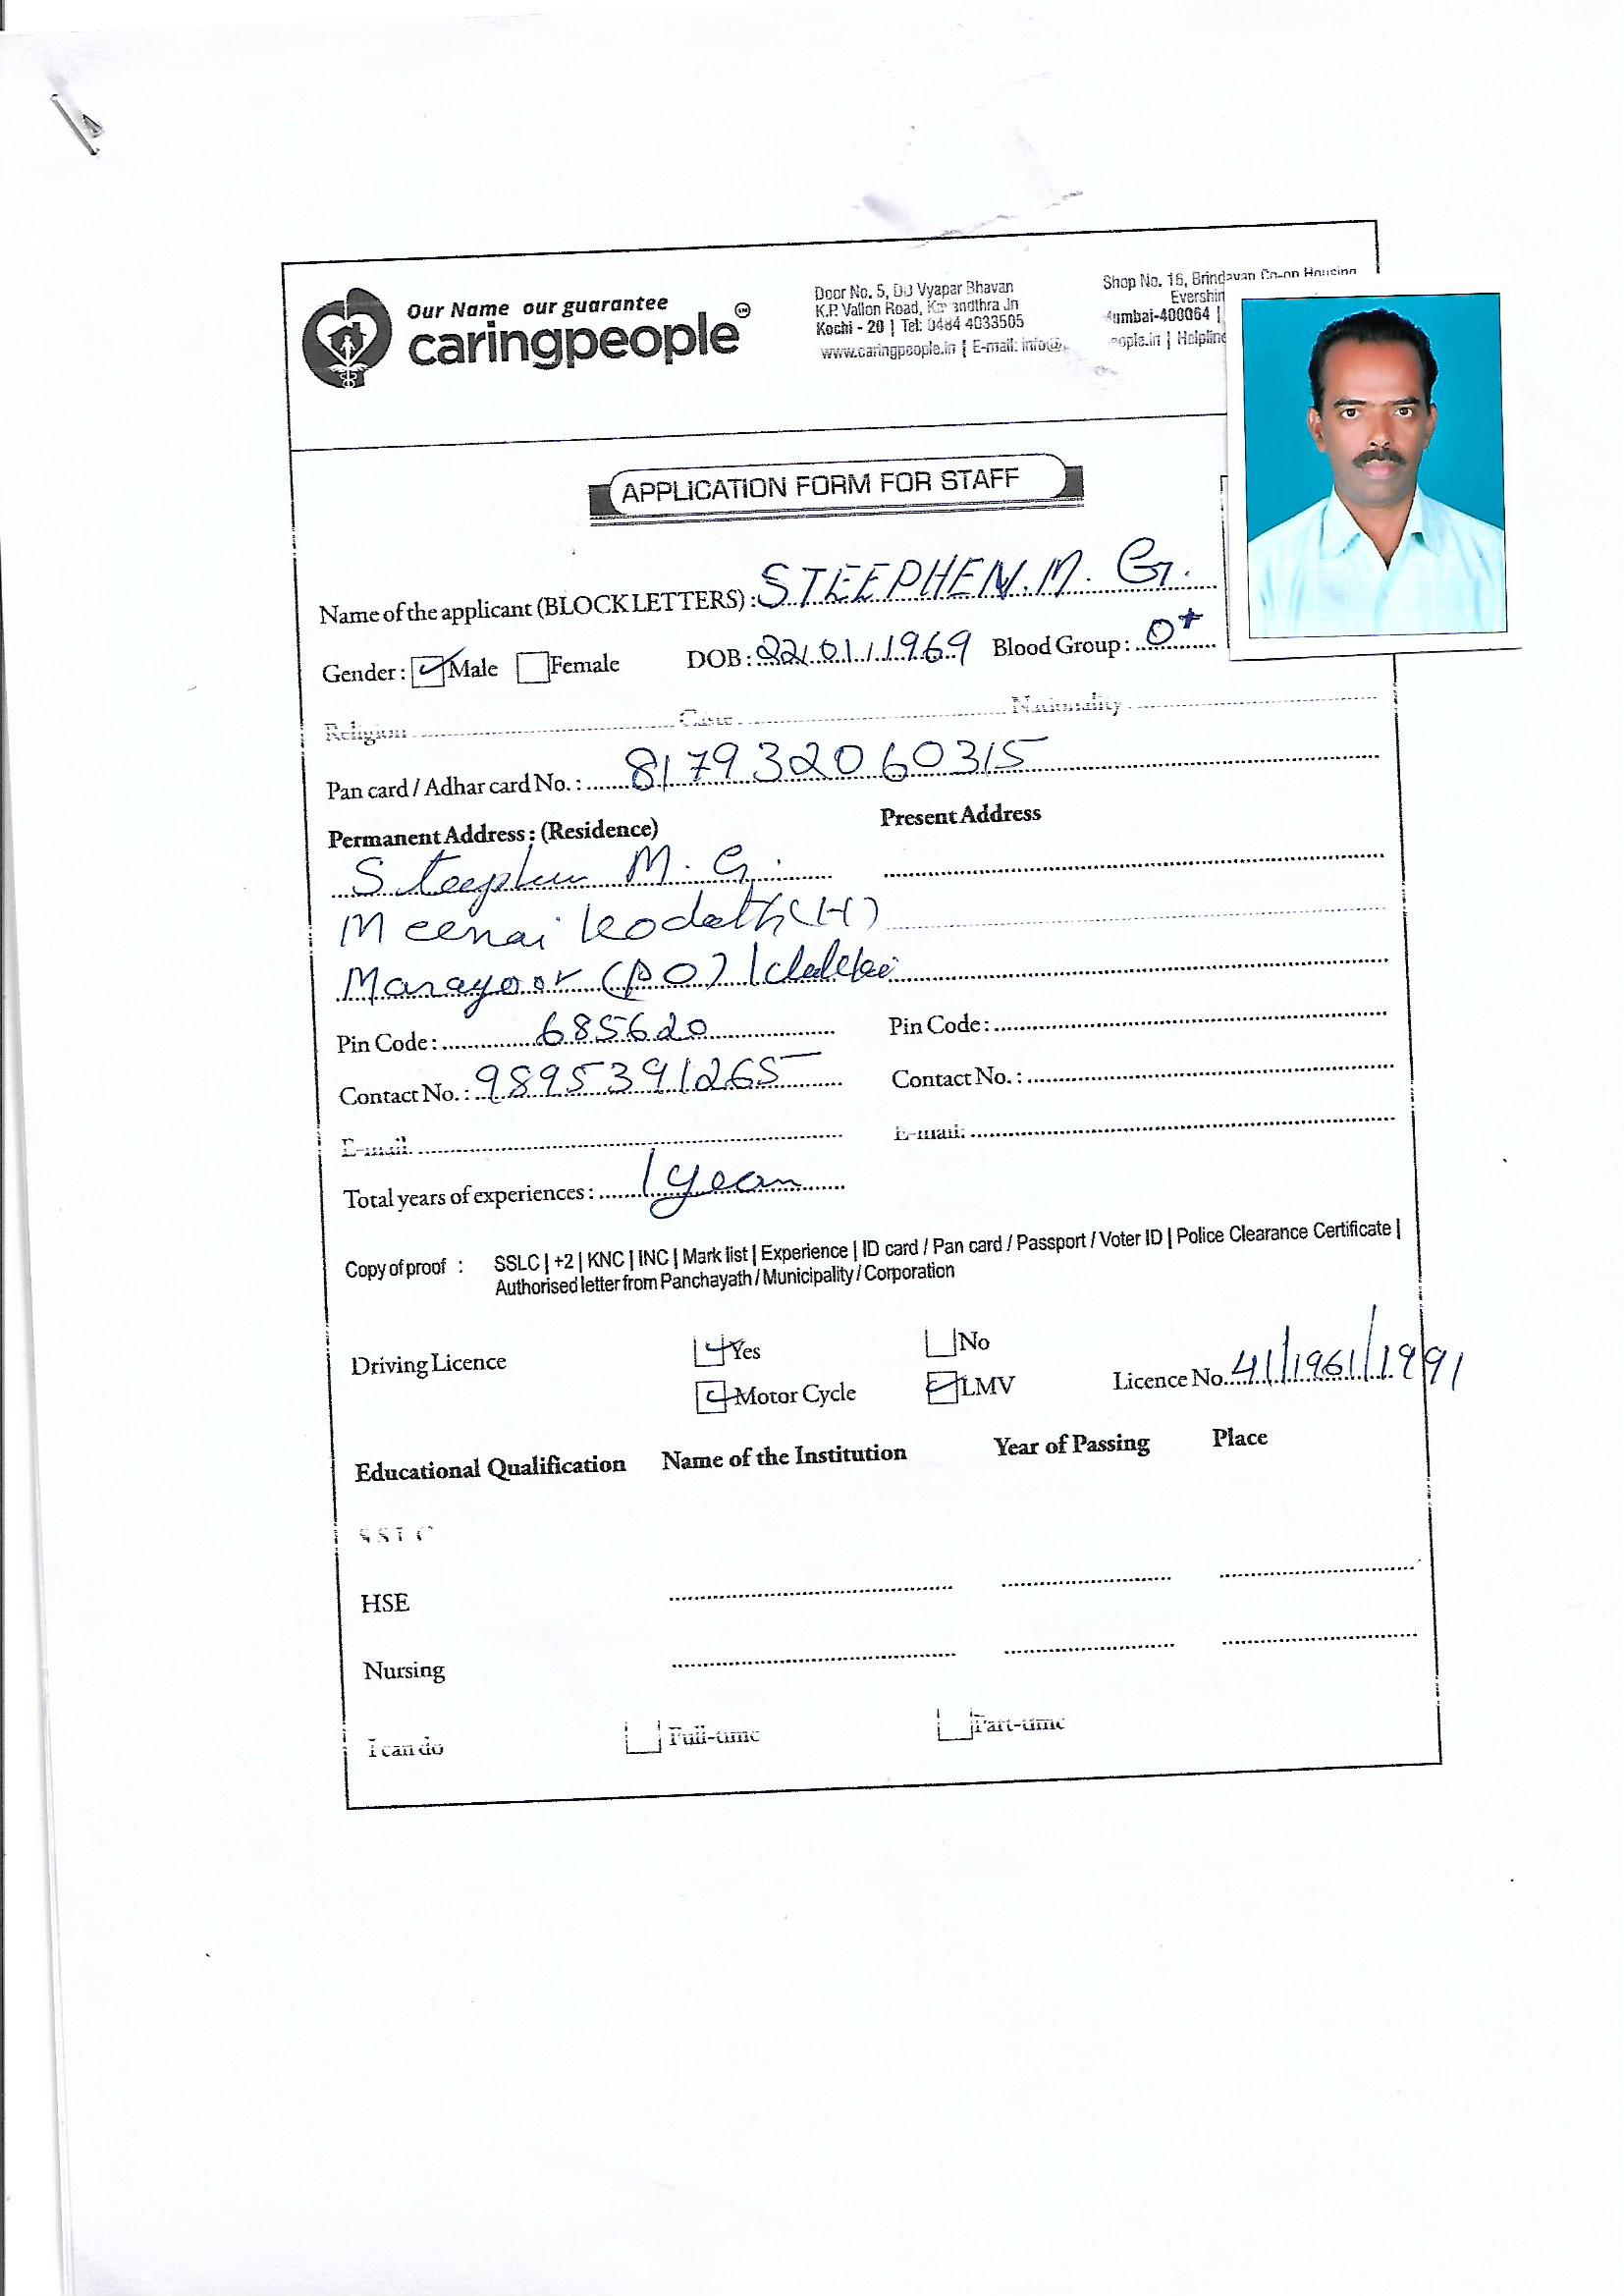 Our Name our guarantee
caringpeople
Door No. 5, DD Vyapar Bhavan
K.P. Vallon Road, Kadavandthra Jn
Kochi - 20 | Tel: 0484 4033505
www.caringpeople.in | E-mail: info@
Shop No. 16, Brindavan Co-op Housing
Evershin
Mumbai-400064 |
people.in | Helpline
APPLICATION FORM FOR STAFF
Name of the applicant (BLOCK LETTERS) : STEEPHEN. M. G.
Gender : Male Female DOB : 22/01/1969 Blood Group : O+
Religion Caste Nationality
Pan card / Adhar card No. : 817932060315
Permanent Address : (Residence) Present Address
Steephen M. G.
Meenai kodath (H)
Marayoor (PO) Idukki
Pin Code : 685620 Pin Code :
Contact No. : 9895391265 Contact No. :
E-mail: E-mail:
Total years of experiences : 1 year
Copy of proof : SSLC | +2 | KNC | INC | Mark list | Experience | ID card / Pan card / Passport / Voter ID | Police Clearance Certificate |
Authorised letter from Panchayath / Municipality / Corporation
Driving Licence Yes No
Motor Cycle LMV Licence No. 41/1961/1991
Educational Qualification Name of the Institution Year of Passing Place
SSLC
HSE
Nursing
I can do Full-time Part-time